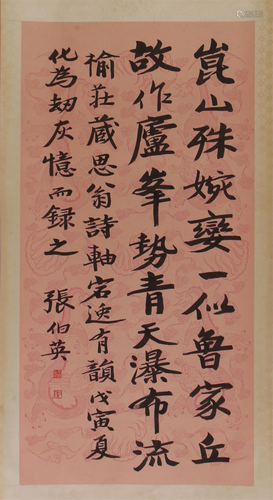 崑山殊婉孌一似魯家丘
故作廬峯勢青天瀑布流
榆莊蔵思翁詩軸宕逸有韻戊寅夏
化為劫灰憶而録之
張伯英